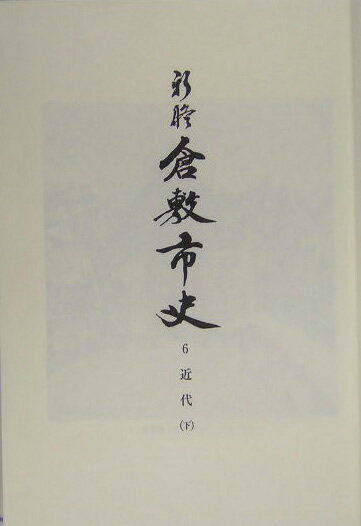 新修倉敷市史
6近代(下)